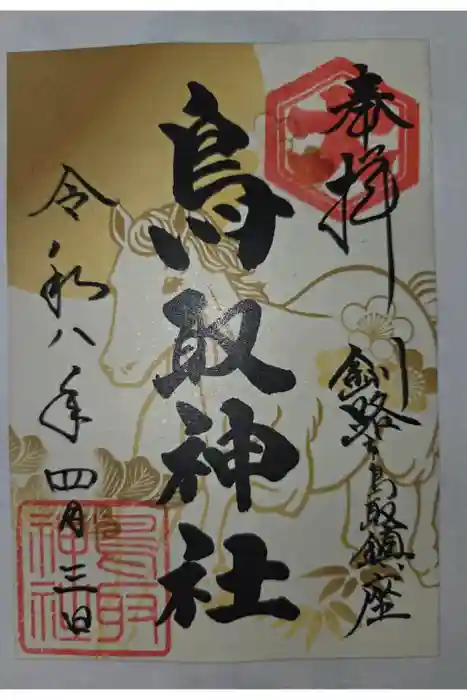 奉拝
釧路ヶ鳥取鎮座
鳥取神社
令和八年四月三日
鳥取
神社